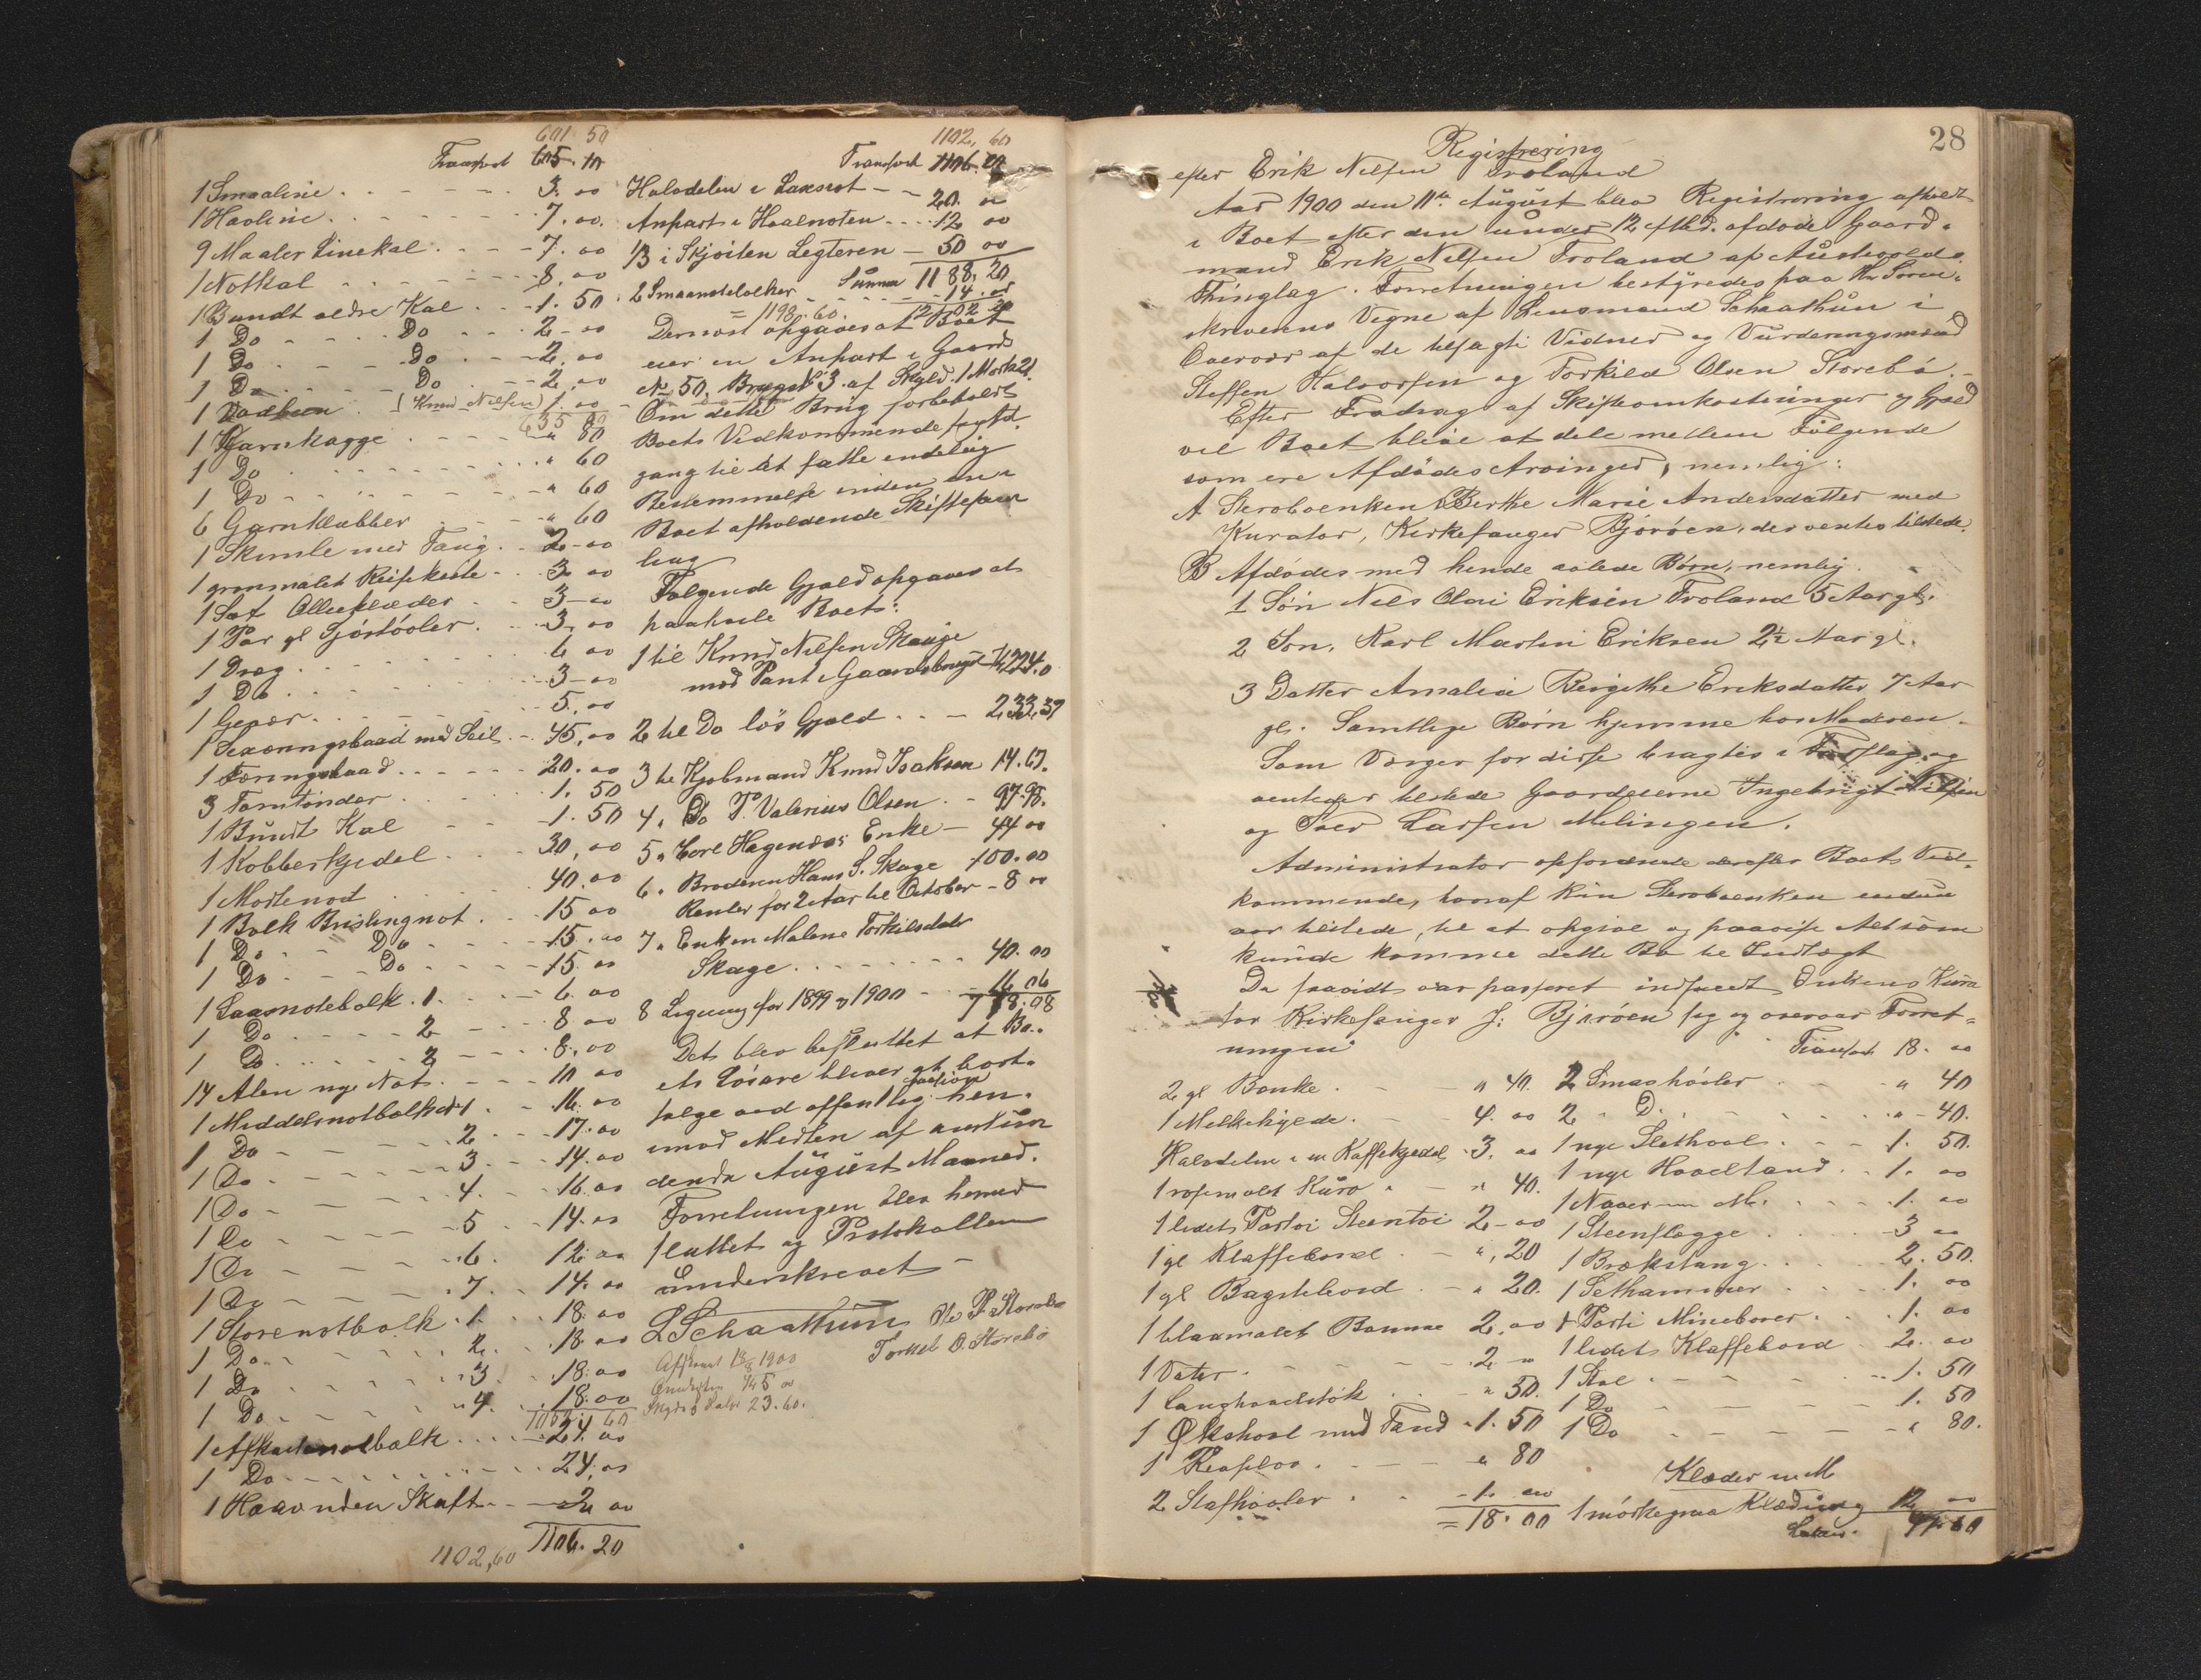 601 50
Transport 605. 10
1 Smaaline 3. 00
1 Havline 7. 00.
9 Maaler Linekal 7. 00
1 Notkal 8. 00
1 Bundt ældre Kal 1. 50
1 Do Do 2 - 00
1 Do Do 2. 00
1 Do Do 2. 00
1 (Knud Nilsen) 1. 00
1 Garnkagge " 80
1 Do " 60
1 Do " 60
6 Garnklubber " 60
1 Skimle med Taug 2 - 00
1 grønmalet Reisekiste 3. 00
1 Sæt Oljeklæder 3 - 00
1 Par gl Sjøstøvler 3. 00
1 Dreg 6 00
1 Do 3 - 00
1 Gevær 5. 00
1 Sexæringsbaad med Seil 45. 00
1 Færingsbaad 20. 00
3 Tomtønder 1. 50
1 Bundt Kal 1. 50
1 Kobberkjedel 30, 00
1 Mortenot 40. 00
1 Bolk Brislingnot 15 00
1 Do Do 15. 00
1 Do Do 15 00
1 Laasnotebolk 1. 6. 00
1 Do 2 8 00
1 Do 3 8. 00
14 Alen nye Not 10 00
1 Middelsnotbolk № 1 16. 00
1 Do 2 17. 00
1 Do 3 14. 00
1 Do 4. 16. 00
1 Do 5 14. 00
1 Do 6. 12. 00
1 Do 7. 14. 00
1 Storenotbolk 1. 18. 00
1 Do 2. 18. 00
1 Do 3 18. 00
1 Do 4. 18. 00
1 24. 00
1 Do 24. 00
1 Haav uden Skaft 2 00
1102,60 1106. 20
1102, 60
Transport 1106. 20
Halvdelen i Laxenot 20. 00
Anpart i Hvalnoten 12 00
1/3 i Skjøiten Legteren 50 00
Summa 1188. 20
2 Smaanotebolker 14. 00
= 1198. 60. 1202 20
Dernæst opgaves at Boet
eier en Anpart i Gaards
№ 50, Brugs № 3. af Skyld 1 Mark 21.
Om dette Brug forbeholdt
Boets Vedkommende sig Ad-
gang til at fatte endelig
Bestemmelse inden en i
Boet afholdende Skiftesam
ling
Følgende Gjæld opgaves at
paahvile Boet:
1 til Knud Nilsen Skauge
med Pant i Gaardsbruget 1,224. 0
2 til Do løs Gjæld 233, 37
3 til Kjøbmand Knud Isaksen 14. 67.
4. Do P. Valerius Olsen 97. 98.
5 " Carl Hagenæs Enke 44 00
6. Broderen Hans S. Skage 100. 00
Renter for 2 Aar til October 8 00
7. Enken Malene Torkilsdatter
Skage 40. 00
8 Ligning for 1899 og 1900 16 06
Det blev besluttet at Bo-
ets Løsøre bliver at bort-
sælge ved offentlig Auktion hen-
imod Midten af næstkom
dende August Maaned.
Forretningen blev hermed
sluttet og Protokollen
underskrevet
L Schaathun Ole P. Storebø
Torkel O. Storebø
Afskrevet 13/8 1900
23. 60.
28
Registrering
efter Erik Nilsen Troland
Aar 1900 den 11te August blev Registrering afholdt
i Boet efter den under 12 f. Md. afdøde Gaard-
mand Erik Nilsen Troland af Austevolds
Thinglag. Forretningen bestyredes paa Hr Soren-
skriverens Vegne af Lensmand Schaathun i
Overvær af de tilsagte Vidner og Vurderingsmænd
Steffen Halvorsen og Torkild Olsen Storebø.
Efter Fradrag af Skifteomkostninger og Gjæld
vil Boet blive at dele mellem Følgende
som ere Afdødes Arvinger, nemlig:
A Sterboenken Berthe Marie Andersdatter med
Kurator, Kirkesanger Bjørøen, der ventes tilstede.
B Afdødes med hende avlede Børn, nemlig
1 Søn Nils Olai Eriksen Troland 5 Aar gl.
2 Søn, Karl Martin Eriksen 2½ Aar gl.
3 Datter Amalie Bergithe Eriksdatter 7 Aar
gl. Samtlige Børn hjemme hos Moderen.
Som Værger for disse bragtes i Forslag og
ventedes tilstede Gaardeierne Ingebrigt Nilsen
og Iver Larsen Melingen.
Administrator opfordrede derefter Boets Ved-
kommende, hvoraf kun Sterboenken endnu
var tilstede, til at opgive og paavise Alt som
kunde komme dette Bo til Indtægt
Da saavidt var passeret indfandt Enkens Kura
tor Kirkesanger J. Bjørøen sig og overvar Forret-
ningen
2 gl Bænke " 40.
1 Melkehylde 4. 00
Halvdelen i en Kaffekjedel 3. 00
1 rosemalt Kurv " 40.
1 lidet Parti Stentøi 2 - 00
1 gl Klaffebord ", 20
1 gl Bagstebord " 20.
1 blaamalet Bomme 2, 00
1 Vater 2 "
1 Langhøvelstok " 50.
1 Økshovl med Tand 1. 50
1 " 80
2 Slathøvler 1. 00
= 18. 00
Transport 18. 00
2 Smaahøvler " 40
2 " D. " 40.
1 nye Slethøvl 1. 50.
1 nye Høveltand 1. 00
1 Naver m. M. 1. 00
1 Steenslægge 3 00
1 Brækstang 2. 50.
1 Sethammer 1. 00
1 Parti Mineborer 1. 00
1 lidet Klaffebord 2. 00
1 Stol 1. 50
1 Do 1. 50
1 Do " 80.
Klæder m M
1 mørkegraa Klædning 12 00
Lateris 47. 60